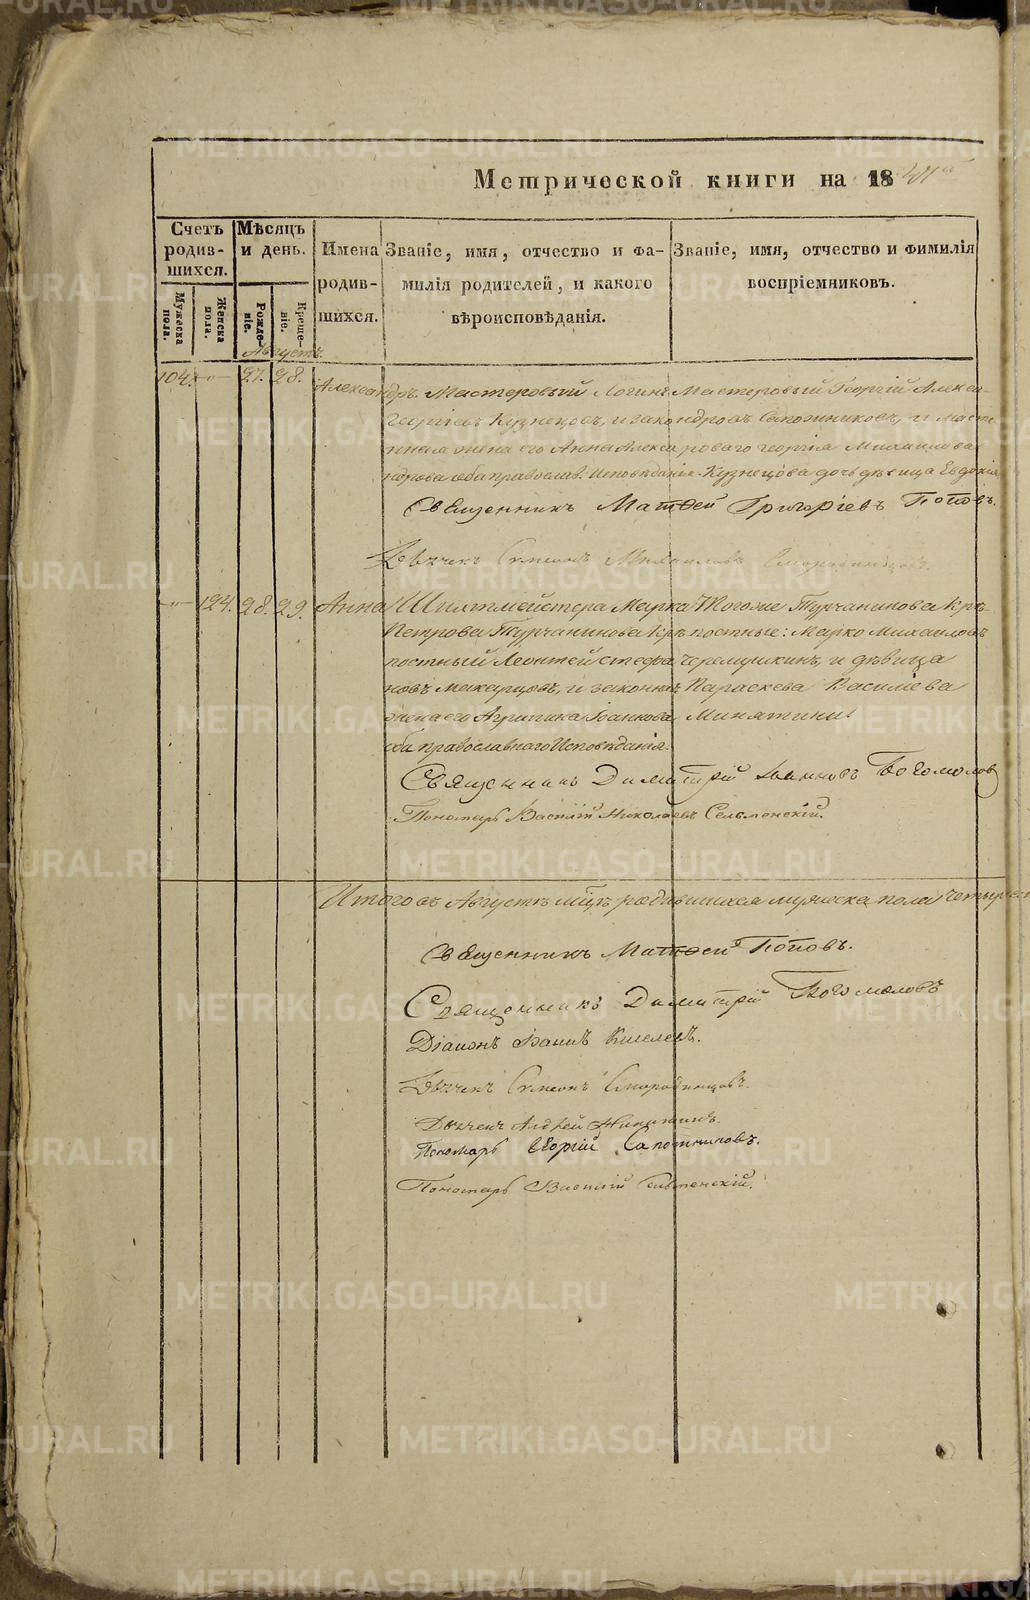 Метрической книги на 18
Счетъ родив-шихся.
Мужеска пола.
Женска пола.
Мѣсяцъ и день.
Рожде-ніе.
Креще-ніе.
Имена родив-шихся.
Званіе, имя, отчество и фа-
милія родителей, и какого
вѣроисповѣданія.
Званіе, имя, отчество и фимилія
воспріемниковъ.
Августъ.
104. -"- 27. 28. Александръ. Мастеровый Логинъ
Георгіевъ Кузнецовъ, и зако
нная жена его Анна Алекса
ндрова оба православ. Исповѣданія.
Мастеровый Георгій Алекса-
ндровъ Сапожниковъ, и масте
роваго Георгія Михаилова
Кузнецова дочь дѣвица Евдокія
Священникъ Матѳей Григоріевъ Поповъ.
Дьячекъ Сѵмеонъ Михаиловъ Смородинцовъ.
-"- 124. 28. 29. Анна Шихтмейстера Марка
Петрова Турчанинова Крѣ
постный Леонтей Стефа
новъ Макаровъ, и законная
жена его Агрипина Іванкова
оба православнаго Исповѣданія.
Тогоже Турчанинова Крѣ-
постные: Марко Михаиловъ
Черемушкинъ, и дѣвица
Параскева Василіева
Минятини
Священникъ Димитрій Іоанновъ Богомоловъ
Пономарь Василій Николаевъ Сельменскій.
Итого въ Августѣ мцѣ родившихся мужеска пола четыр
Священникъ Матѳей Поповъ.
Священникъ Димитрій Богомоловъ
Діаконъ Іоаннъ Киселевъ.
Дьячекъ Сѵмеонъ Смородинцовъ.
Дьячекъ Андрей Никитинъ.
Пономарь Георгій Сапожниковъ.
Пономарь Василій Сельменскій.
METRIKI.GASO-URAL.RU